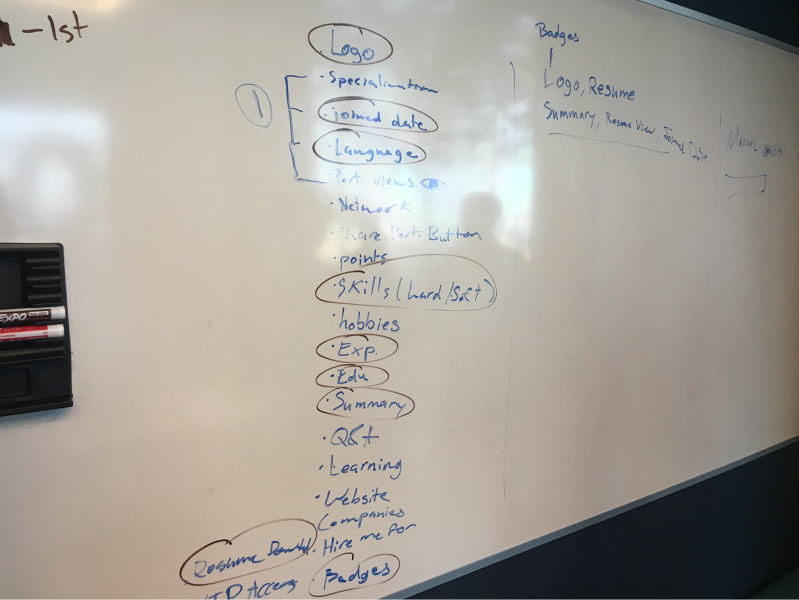 -1st
Logo
1
· Specialization
· joined date
· Language
· Port. Views
· Network
· Share Port. Button
· points
· Skills (hard/Soft)
· hobbies
· Exp.
· Edu
· Summary
· Q&A
· Learning
· Website
Companies
· Hire me for
Resume
Access
· Badges
Badges
Logo, Resume
Summary, Resume View, Joined Date
EXPO